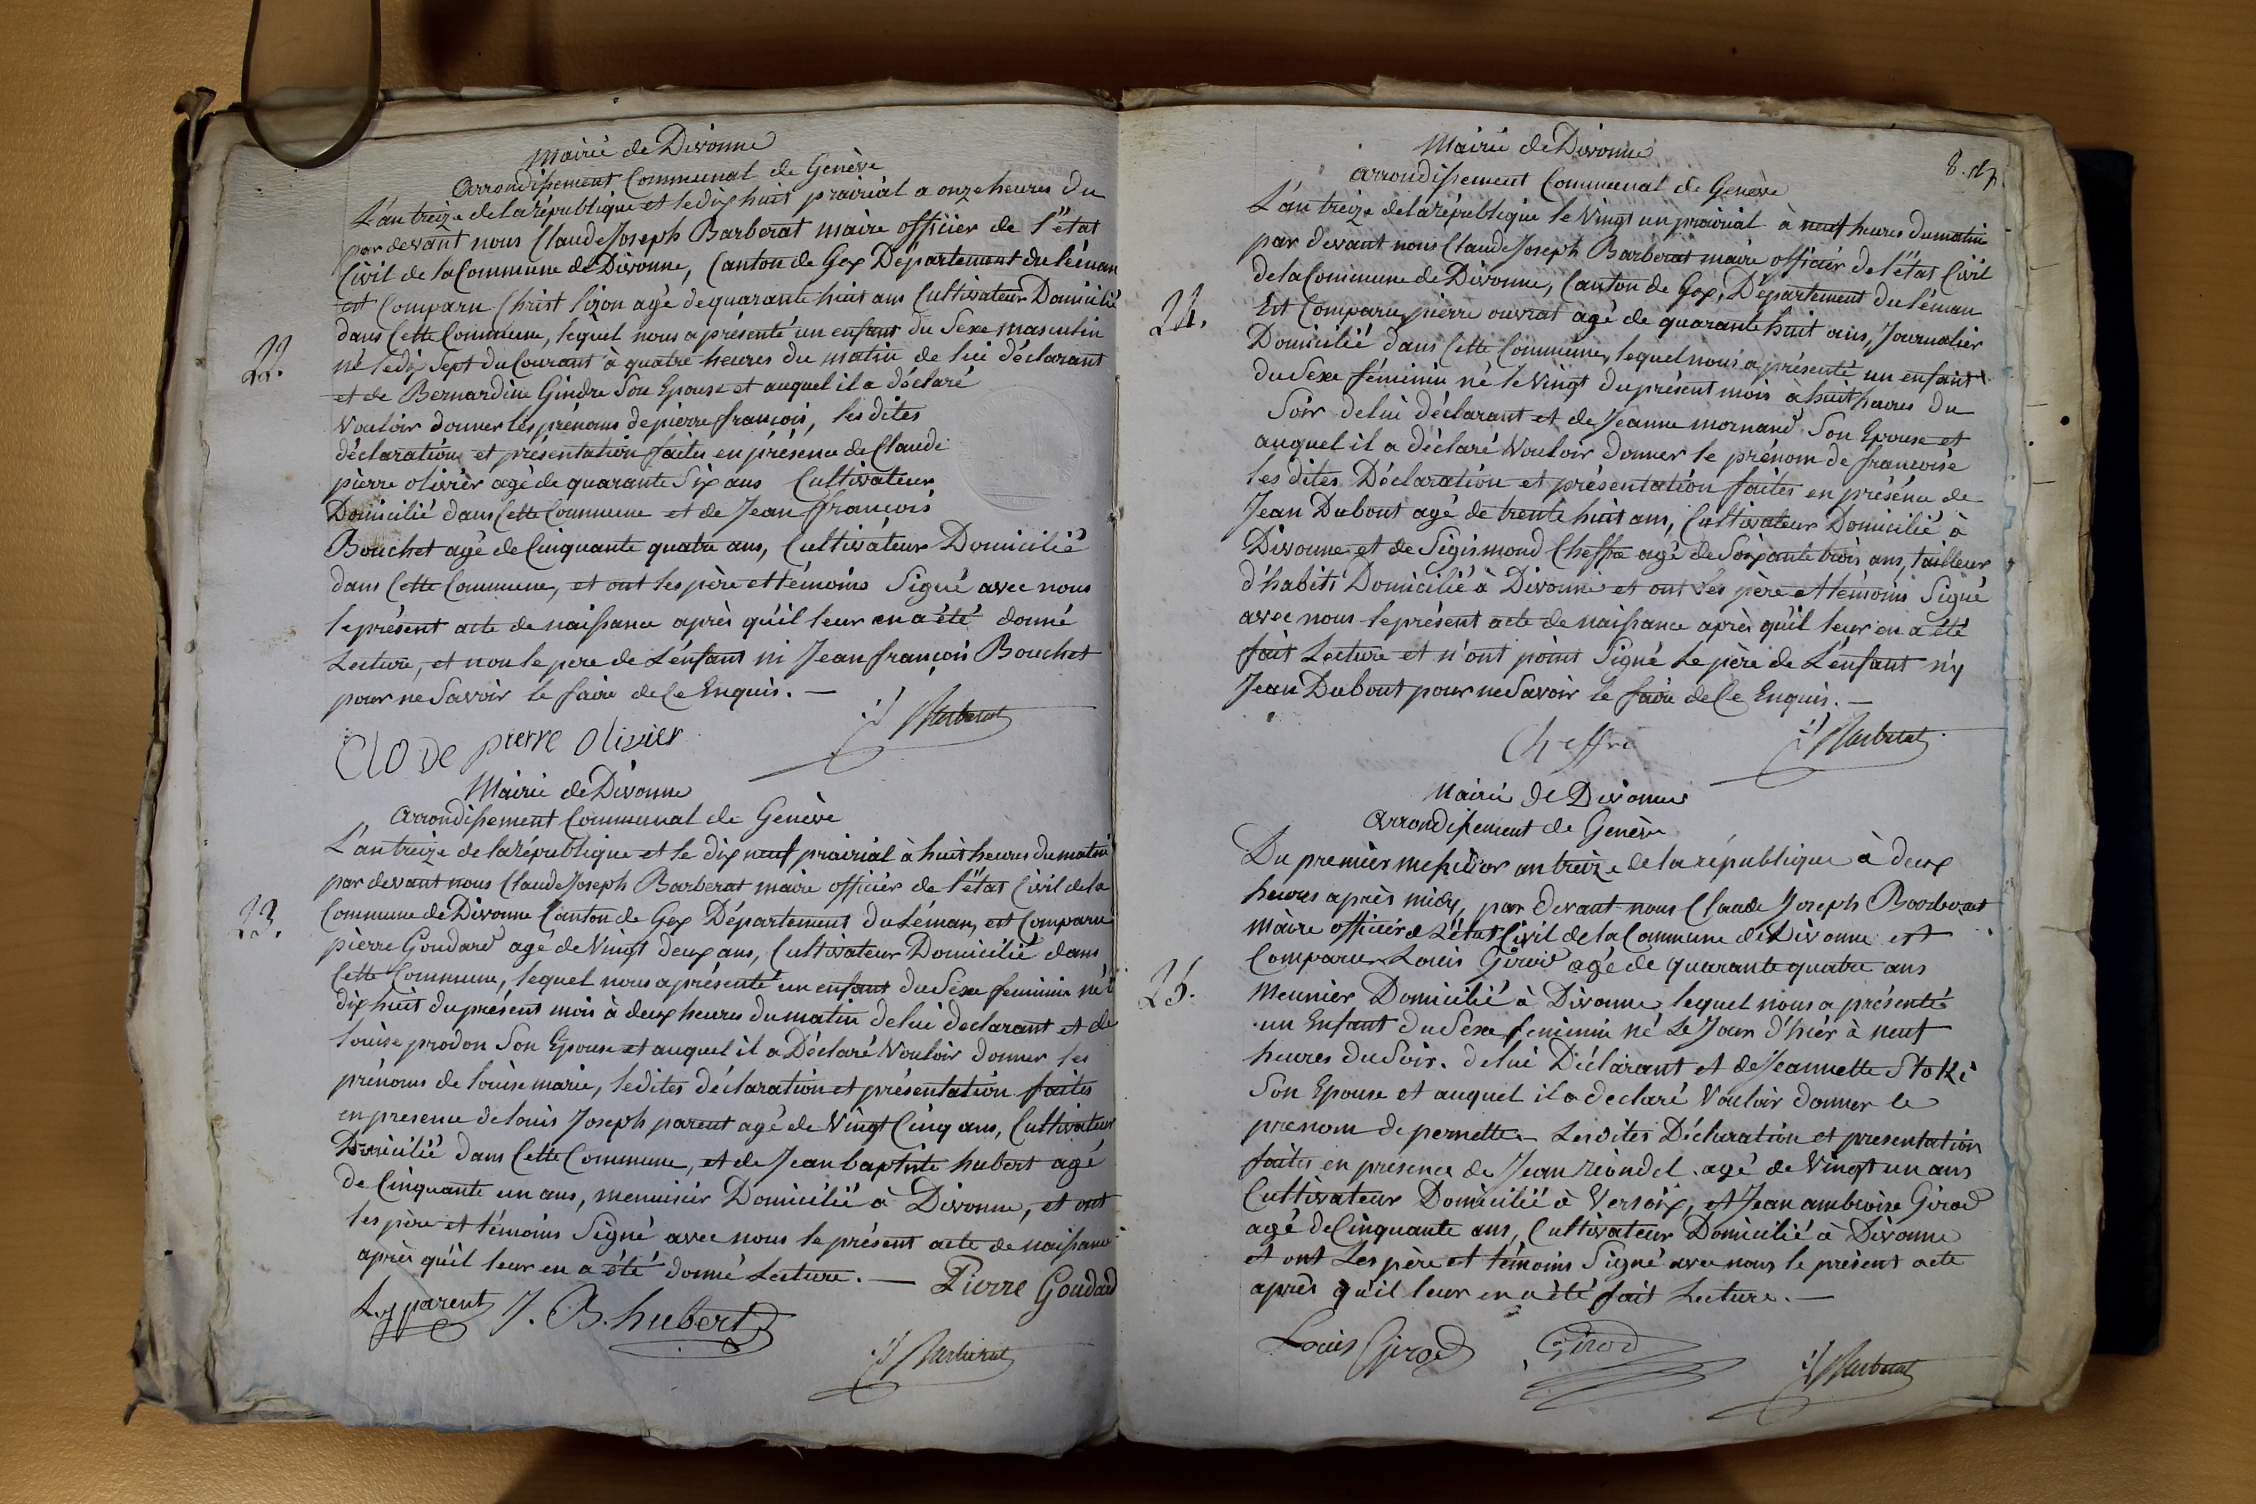 Mairie de Divonne
Arrondissement Communal de Genève
L'an treize de la république et le dix huit prairial a onze heures du
par devant nous Claude Joseph Barberat maire officier de l'état
Civil de la Commune de Divonne, Canton de Gex Département du léman
est Comparu Christ lizon agé de quarante huit ans Cultivateur Domicilié
dans Cette Commune, lequel nous a présenté un enfant du Sexe masculin
22.
né le dix Sept du Courant à quatre heures du matin de lui déclarant
et de Bernardine Gindre Son Epouse et auquel il a déclaré
Vouloir donner les prénoms de pierre françois, les dites
déclaration et présentation faites en présence de Claude
pierre olivier agé de quarante Six ans Cultivateur
Domicilié dans Cette Commune et de Jean françois
Bouchet agé de Cinquante quatre ans, Cultivateur Domicilié
dans Cette Commune, et ont les père et témoins Signé avec nous
le présent acte de naissance après qu'il leur en a été donné
Lecture, et non le pere de L'enfant ni Jean françois Bouchet
pour ne Savoir le faire de Ce Enquis. —
CLODE pierre Olivier
Barberat
Mairie de Divonne
Arrondissement Communal de Genève
L'an treize de la république et le dix neuf prairial à huit heures du matin
par devant nous Claude Joseph Barberat maire officier de l'état Civil de la
23.
Commune de Divonne Canton de Gex Département du Léman, est Comparu
pierre Goudard agé de Vingt deux ans, Cultivateur Domicilié dans
Cette Commune, lequel nous a présenté un enfant du Sexe feminin né
dix huit du présent mois à deux heures du matin de lui déclarant et de
Louise prodon Son Epouse et auquel il a Déclaré Vouloir donner les
prénoms de louise marie, les dites déclaration et présentation faites
en presence de louis Joseph parent agé de Vingt Cinq ans, Cultivateur
Domicilié dans Cette Commune, et de Jean baptiste hubert agé
de Cinquante un ans, menuisier Domicilié à Divonne, et ont
les père et témoins Signé avec nous le présent acte de naissance
après qu'il leur en a été donné Lecture. —
Pierre Goudard
L. J. parent J. B. hubert
Barberat
8.
Mairie de Divonne
Arrondissement Communal de Genève
L'an treize de la république le Vingt un prairial à neuf heures du matin
par devant nous Claude Joseph Barberat maire officier de l'état Civil
de la Commune de Divonne, Canton de Gex, Département du léman
24.
Est Comparu pierre ouvrat agé de quarante huit ans, Journalier
Domicilié dans Cette Commune, lequel nous a présenté un enfant
du Sexe féminin né le Vingt du présent mois à huit heures du
Soir de lui déclarant et de Jeanne mornand Son Epouse et
auquel il a déclaré Vouloir donner le prénom de françoise
les dites Déclaration et présentation faites en présence de
Jean Dubout agé de trente huit ans, Cultivateur Domicilié à
Divonne et de Sigismond Cheffre agé de Soixante trois ans, tailleur
d'habits Domicilié à Divonne et ont les père et témoins Signé
avec nous le présent acte de naissance après qu'il leur en a été
fait Lecture et n'ont point Signé Le père de L'enfant n'y
Jean Dubout pour ne Savoir le faire de Ce Enquis. —
Cheffre
Barberat
Mairie de Divonne
Arrondissement de Genève
Du premier messidor an treize de la république à deux
heures après midy, par devant nous Claude Joseph Barberat
Maire officier de L'état Civil de la Commune de Divonne est
Comparu Louis Girod agé de quarante quatre ans
25.
Meunier Domicilié à Divonne lequel nous a présenté
un Enfant du Sexe feminin né Le Jour d'hier à neuf
heures du Soir. de lui Déclarant et de Jeannette Stoki
Son Epouse et auquel il a déclaré Vouloir donner le
prenom de pernette. Les dites Déclaration et presentation
faites en presence de Jean riondel agé de Vingt un ans
Cultivateur Domicilié à Versoix, et Jean ambroise Girod
agé de Cinquante ans, Cultivateur Domicilié à Divonne
et ont Les père et témoins Signé avec nous le présent acte
après qu'il leur en a été fait Lecture. —
Louis Girod Girod
Barberat